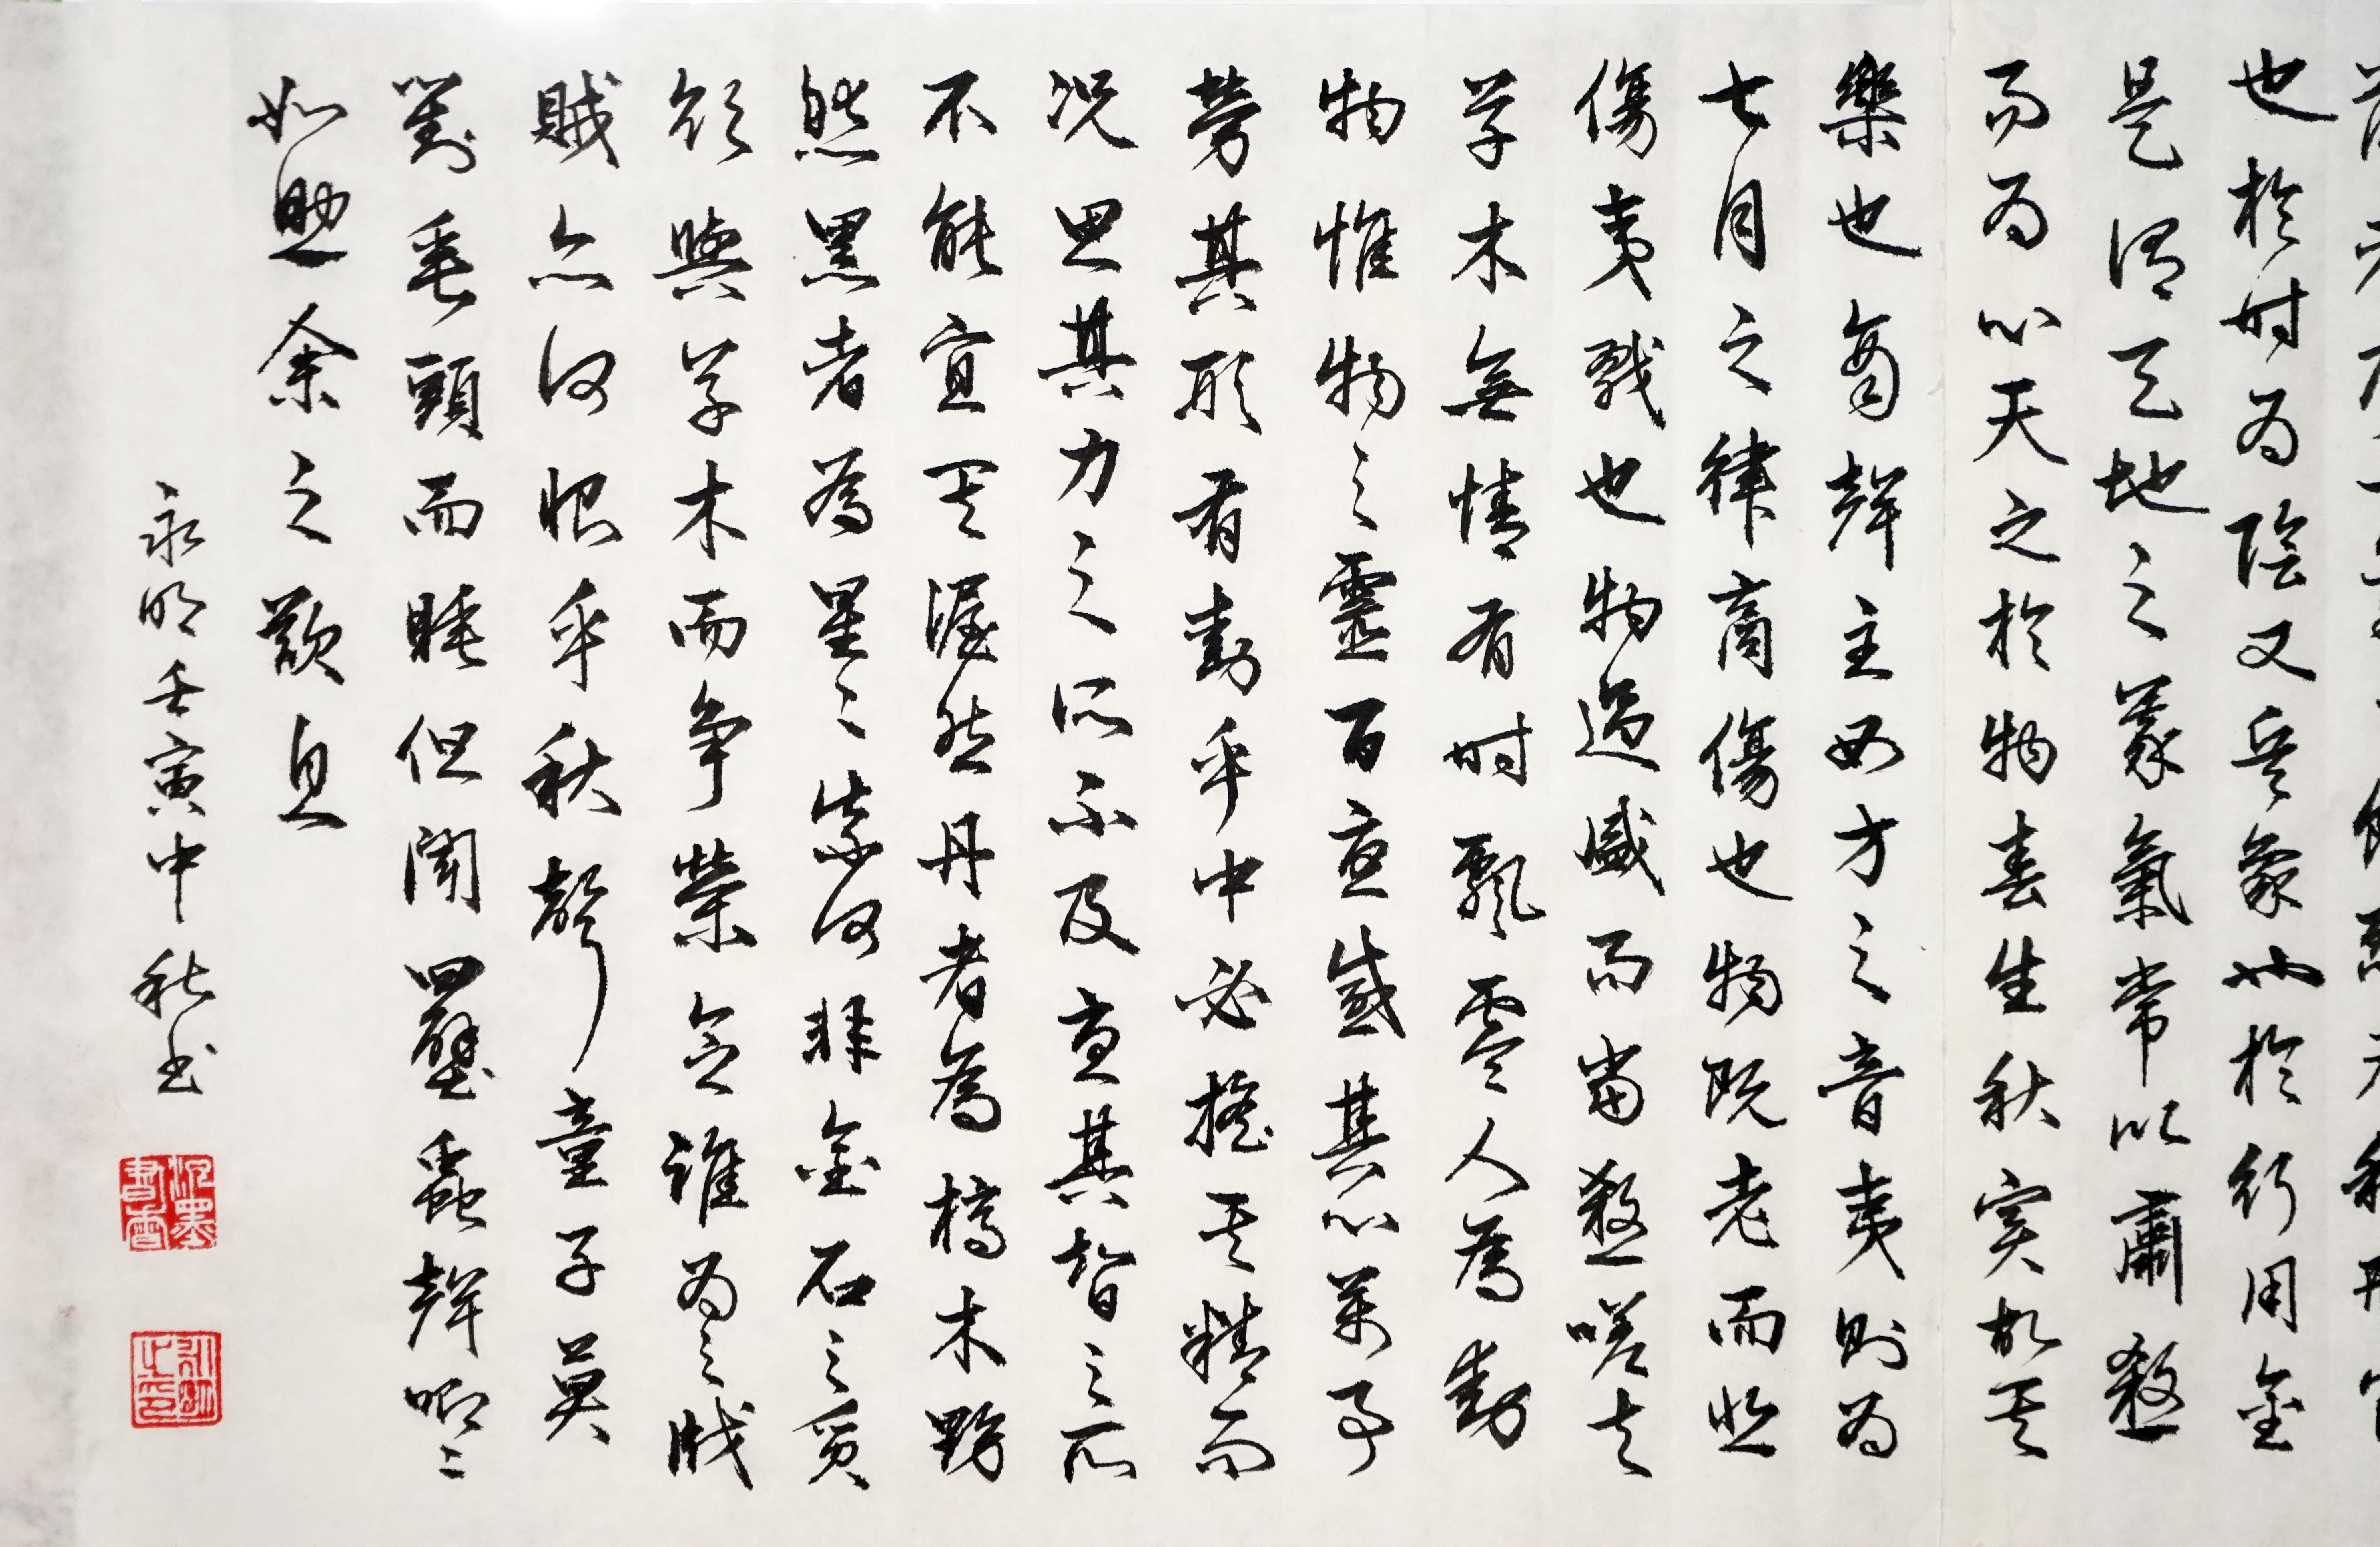 也於时为陰又兵象也於行用金
是谓天地之義氣常以肅殺
而为心天之於物春生秋实故其
樂也商聲主西方之音夷則为
七月之律商傷也物既老而悲
傷夷戮也物過盛而當殺嗟夫
草木無情有时飄零人為動
物惟物之靈百憂感其心萬事
勞其形有動乎中必搖其精而
况思其力之所不及憂其智之所
不能宜其渥然丹者為槁木黟
然黑者為星々奈何非金石之質
欲與草木而争榮念誰为之戕
賊亦何恨乎秋聲童子莫
對垂頭而睡但聞四壁蟲聲唧々
如助余之歎息
永明壬寅中秋书
沉墨書香
永明之印